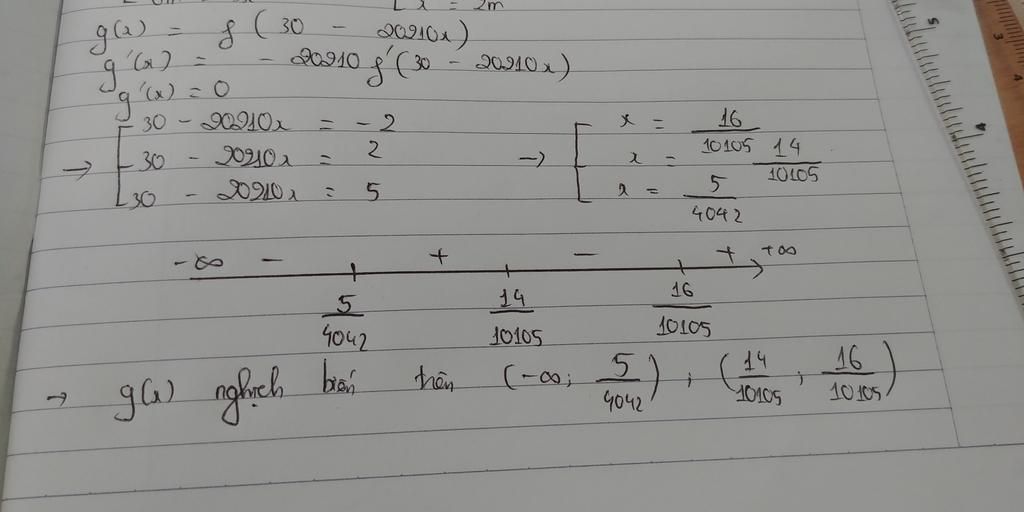 x = 2m
g(x) = f(30 - 20210x)
g'(x) = - 20210 f'(30 - 20210x)
g'(x) = 0
→ [ 30 - 20210x = -2 → [ x = 16/10105
30 - 20210x = 2 x = 14/10105
30 - 20210x = 5 x = 5/4042
-∞ - + - + +∞
5/4042 14/10105 16/10105
→ g(x) nghịch biến trên (-∞; 5/4042); (14/10105; 16/10105)